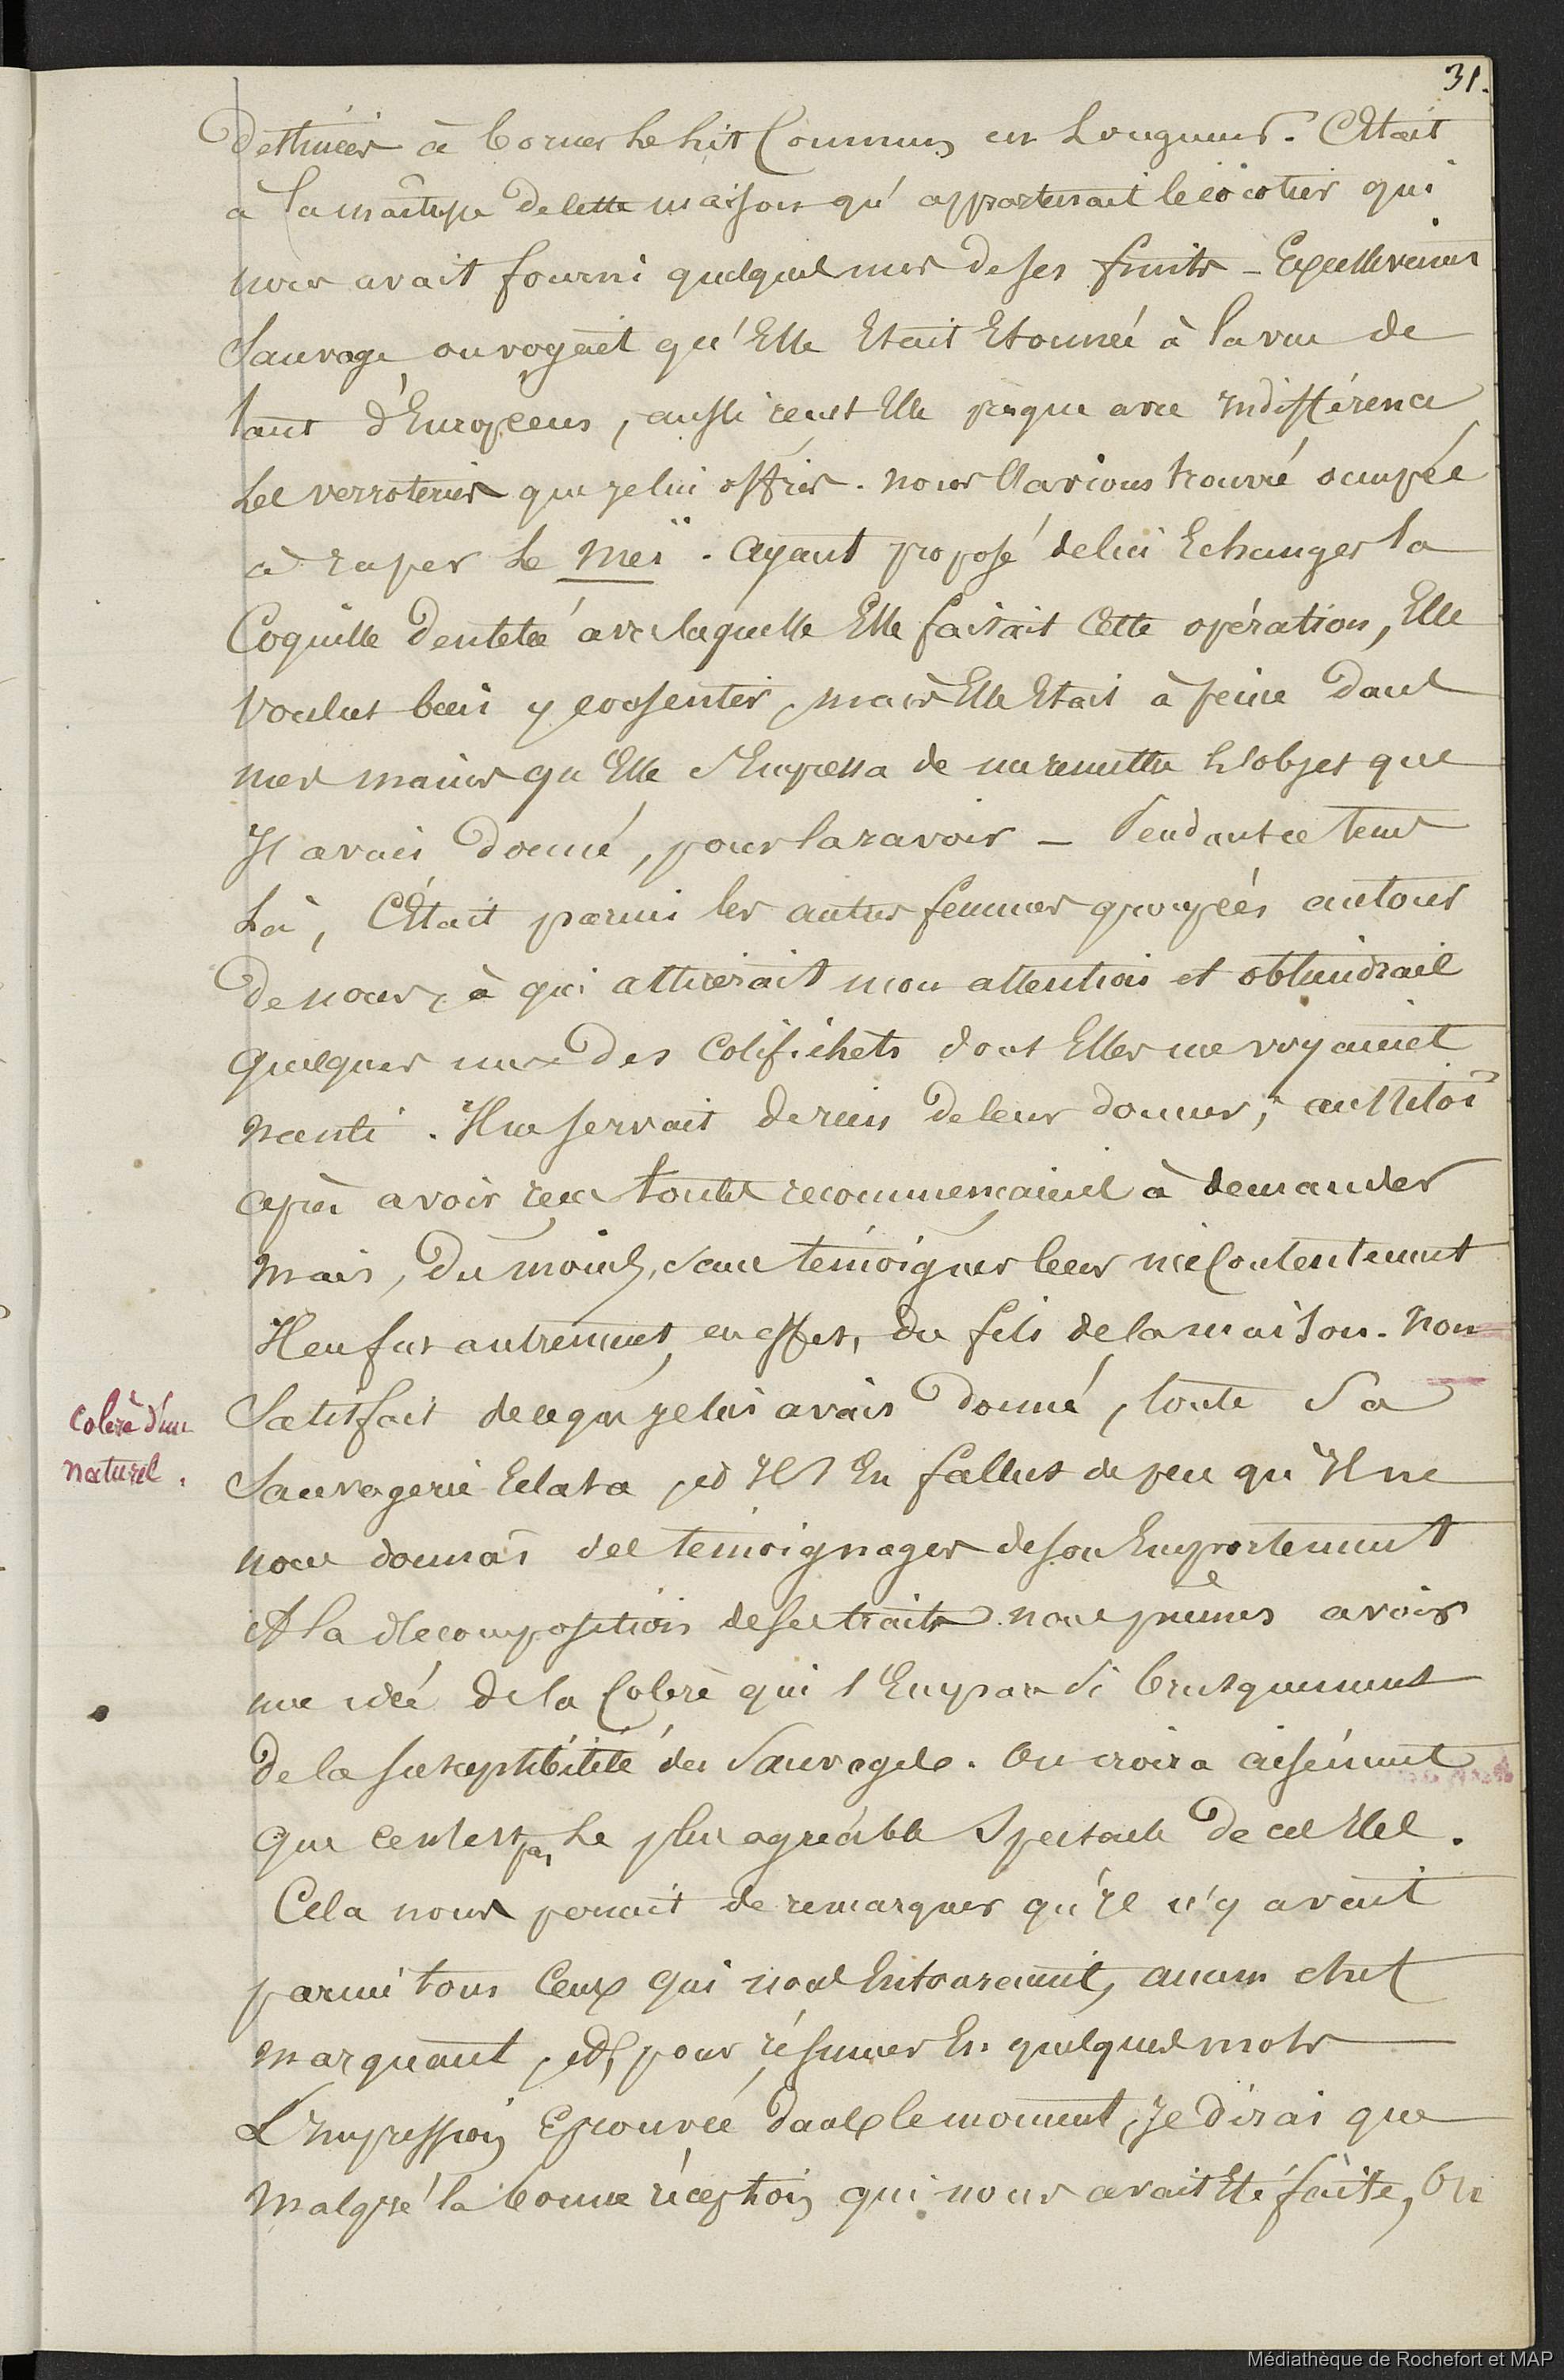 31.
destinées à borner le lit Commun en Longueur. C'Etait
à la maîtresse de cette maison qu'appartenait le cocotier qui
nous avait fourni quelques uns de ses fruits - Excellemment
Sauvage, on voyait qu'Elle Etait Etonnée à la vue de
tant d'Européens, aussi reçut Elle presque avec Indifférence
Les verroteries que je lui offris. nous l'avions trouvé occupée
à raper Le Meï. Ayant proposé de lui Echanger la
Coquille dentelée avec laquelle Elle faisait cette opération, Elle
Voulut bien y consentir, mais Elle Etait à peine dans
mes mains qu'Elle S'Empressa de me remettre L'objet que
J'avais donné, pour la ravoir - Pendant ce tems
Là, C'Etait parmi les autres femmes groupées autour
de nous, à qui attirerait mon attention et obtiendrait
quelques uns des Colifichets dont Elles me voyaient
nanti. Il ne servait de rien de leur donner, aussitôt
après avoir reçu toutes recommençaient à demander
Mais, du moins, sans témoigner leur mécontentement
Il en fut autrement, en effet, du fils de la maison. Non
Satisfait de ce que je lui avais donné, toute Sa
Colère d'un
naturel.
Sauvagerie Eclata, et Il S'En fallut de peu qu'Il ne
nous donnât des témoignages de son Emportement
A la décomposition de ses traits nous pûmes avoir
une idée de la Colère qui S'Empare Si brusquement
de la susceptibilité des Sauvages. On croira aisément
que ce n'est pas Le plus agréable Spectacle de cet Ile.
Cela nous permit de remarquer qu'Il n'y avait
parmi tous Ceux qui nous Entouraient, aucun chef
marquant, et, pour résumer En quelques mots
L'Impression Eprouvée dans le moment, Je dirai que
Malgré la bonne réception qui nous avait Eté faite, On
Médiathèque de Rochefort et MAP